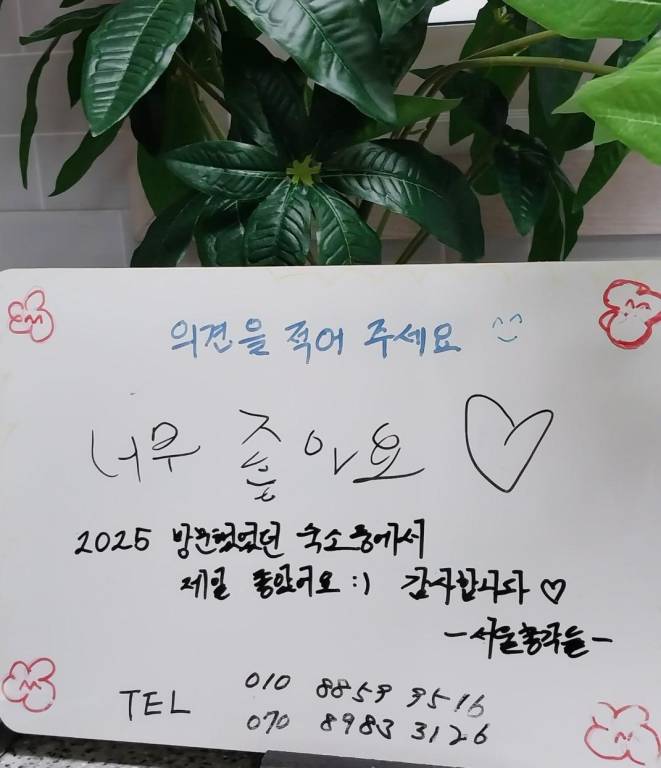 의견을 적어 주세요 ^^
너무 좋아요 ♡
2025 방문했었던 숙소중에서
제일 좋았어요 :) 감사합니다 ♡
-서울총각들-
TEL 010 8859 9516
070 8983 3126